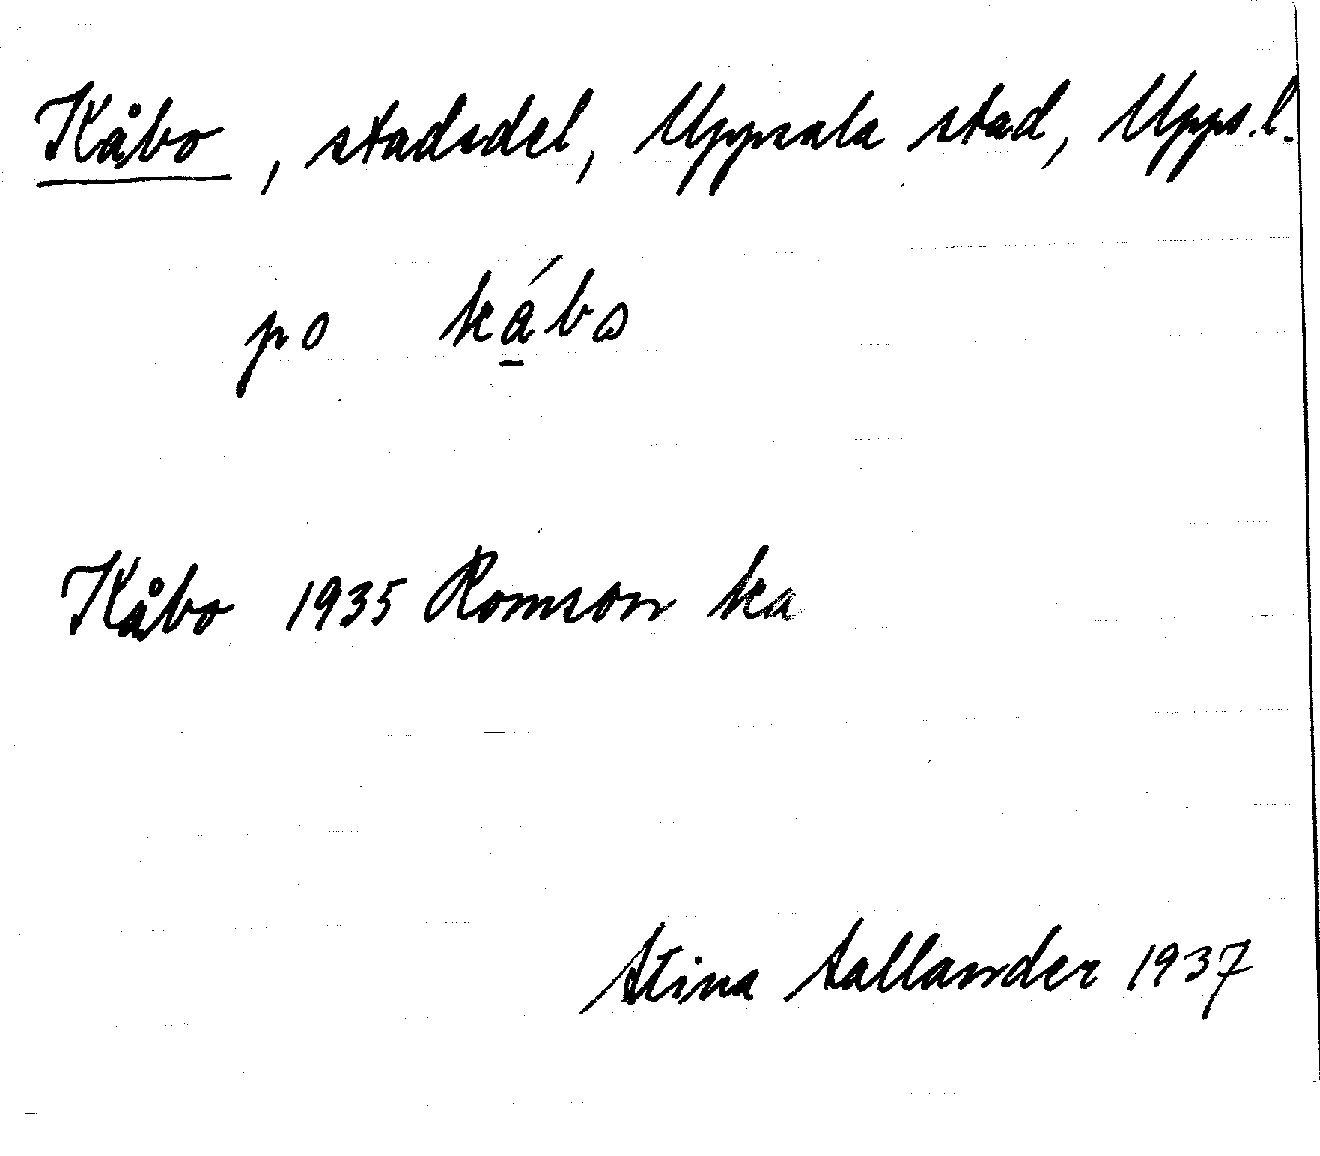 Kåbo, stadsdel, Uppsala stad, Upps.l.
po ká̱bω
Kåbo 1935 Romson ka
Stina Sallander 1937